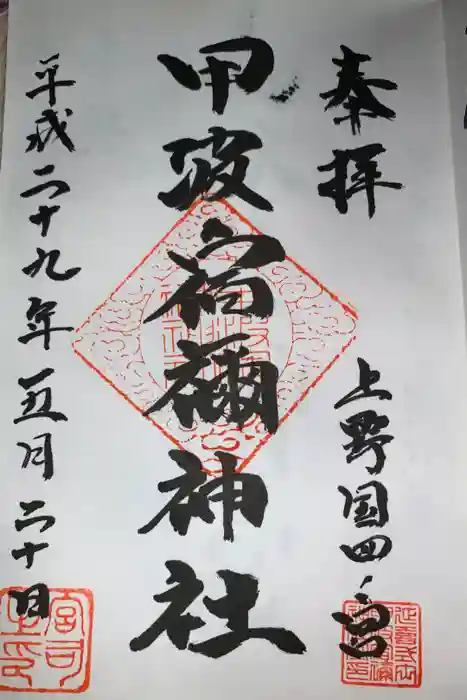 奉拝
上野国四ノ宮
甲波宿禰神社
平成二十九年五月二十日
宮司之印